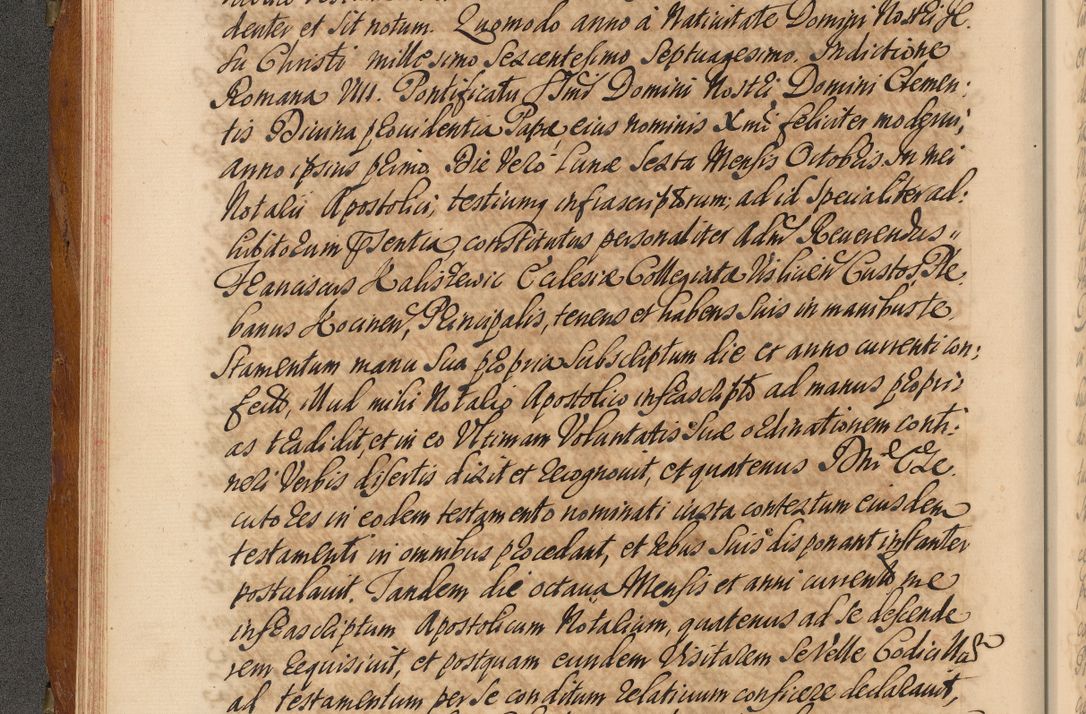 denter et sit notum. Quomodo anno à Nativitate Domini Nostri Je„
su Christi millesimo sexcentesimo septuagesimo. Indictione
Romana VIII. Pontificatu Ssmi Domini Nostri Domini Clemen:
tis Divina providentia Papæ eius nominis Xmi feliciter moderni,
anno ipsius primo. Die vero Lunæ sexta Mensis Octobris In mei
Notarii Apostolici, testiumq infrascriptorum, ad id specialiter ad:
hibitorum Psentia constitutus personaliter Adm Reverendus
Franciscus Kaliszewic Ecclesiæ Collegiatæ Vislicien Custos, Ple
banus Kocinen, Principalis, tenens et habens suis in manibus te
stamentum manu sua propria subscriptum die et anno currenti con:
fect, illud mihi Notario Apostolico infrascripto ad manus propri:
as tradidit, et in eo Ultimam Voluntatis suæ ordinationem conti:
neri Verbis disertis dixit et recognovit, et quatenus Exe
cutores in eodem testamento nominati iuxta contextum eiusdem
testamenti in omnibus procedant, et rebus suis disponant instanter
postulavit. Tandem die octava Mensis et anni currentis me
infrascriptum Apostolicum Notarium, quatenus ad se descende
rem requisivit, et postquam eundem Visitarem se velle Codicillar
ad testamentum per se conditum relativum conficere declaravit,